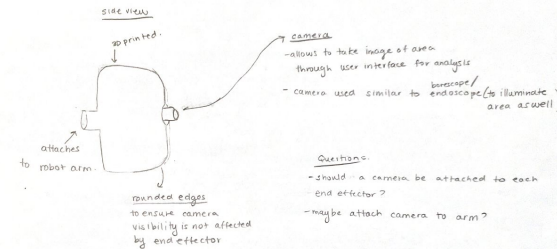 side view
3D printed.
attaches
to robot arm.
rounded edges
to ensure camera
visibility is not affected
by end effector
camera
- allows to take image of area
through user interface for analysis
- camera used similar to borescope/
endoscope (to illuminate
area as well
Questions.
- should a camera be attached to each
end effector?
- maybe attach camera to arm?